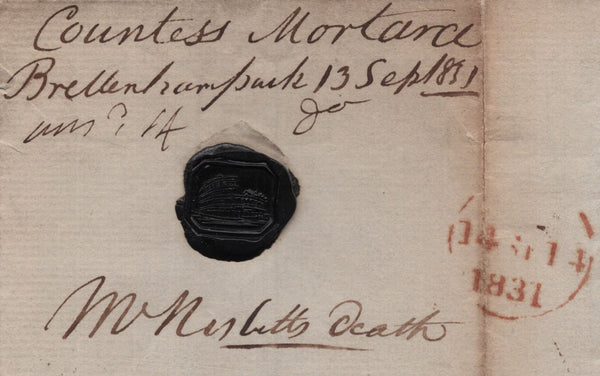 Countess Mortara
Brettenhampark 13 Sep 1831
ansd 14 do
Mr Nesbitts death
14 14
1831